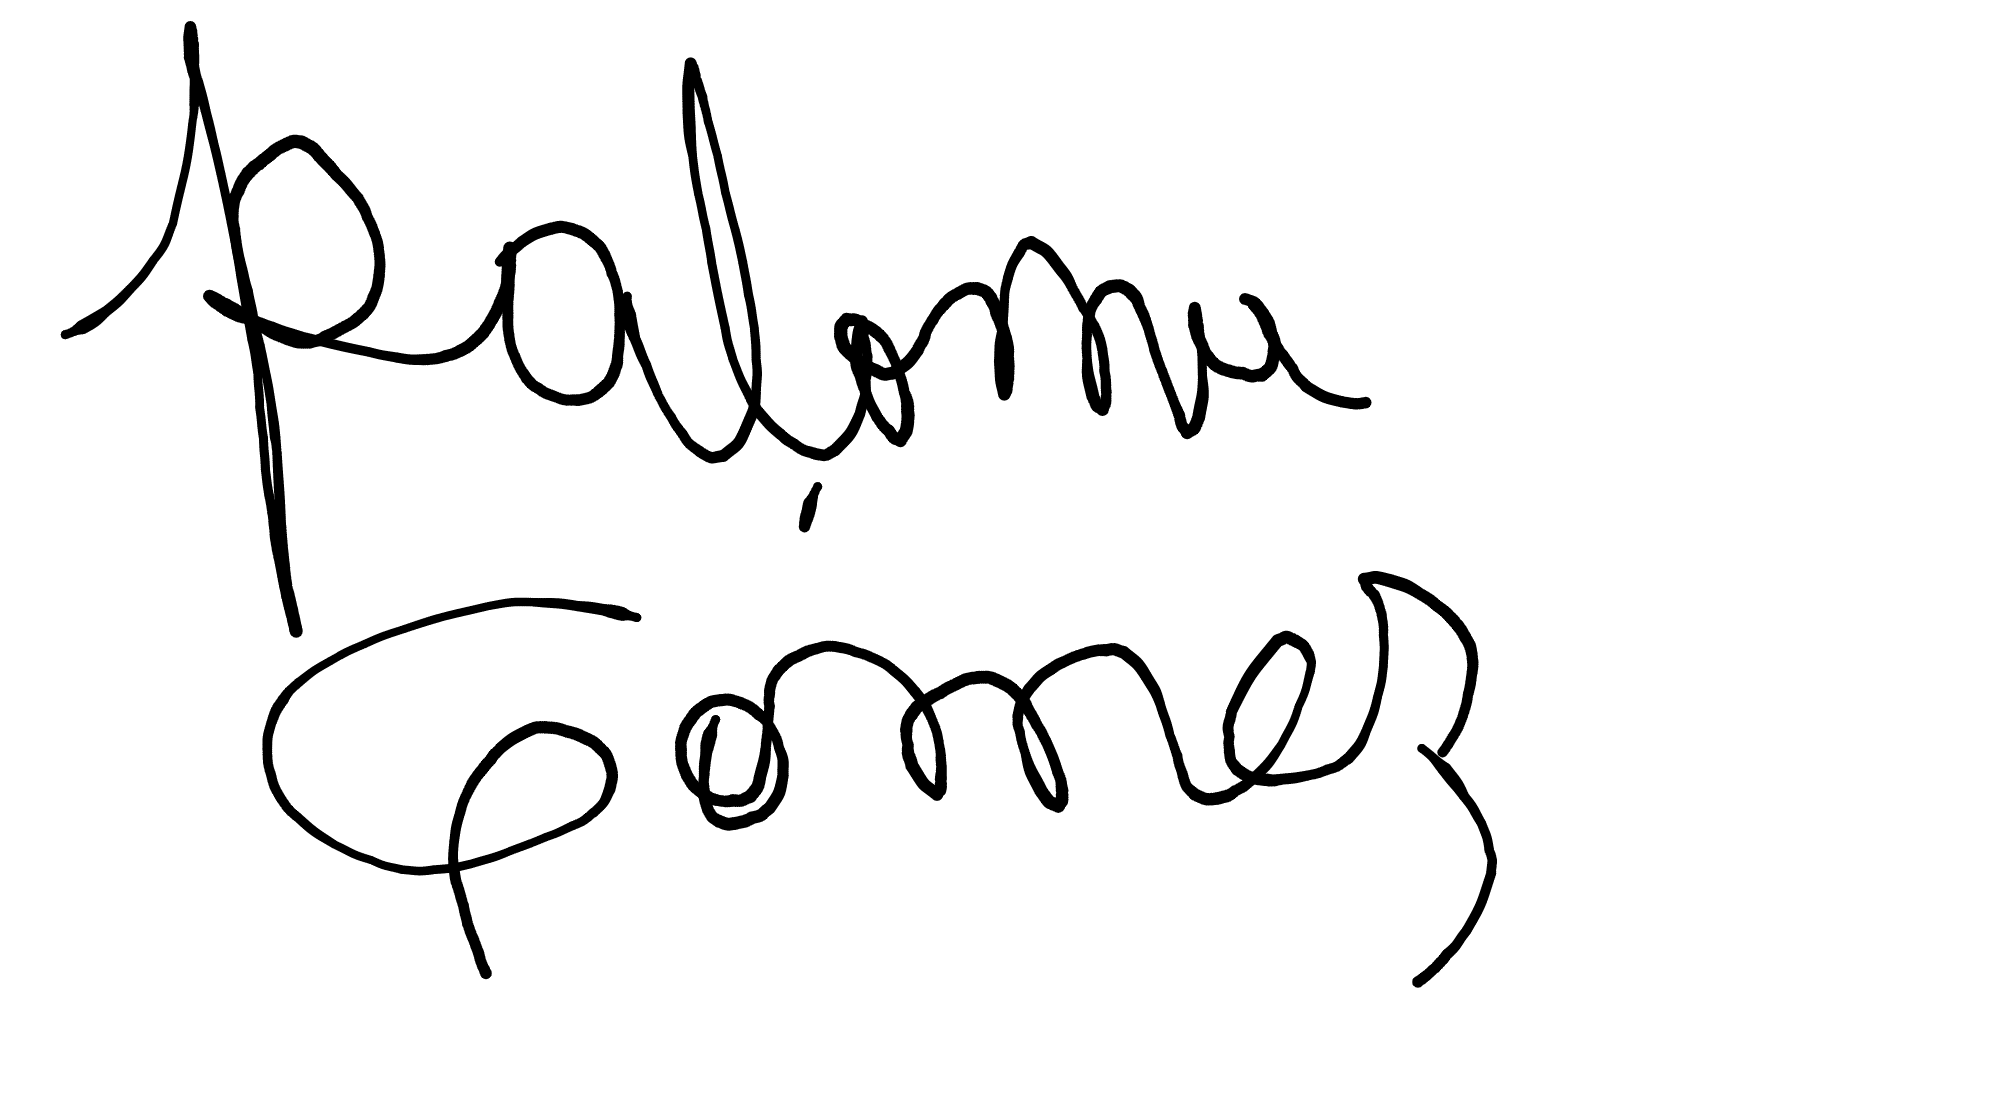 Paloma
Gómez